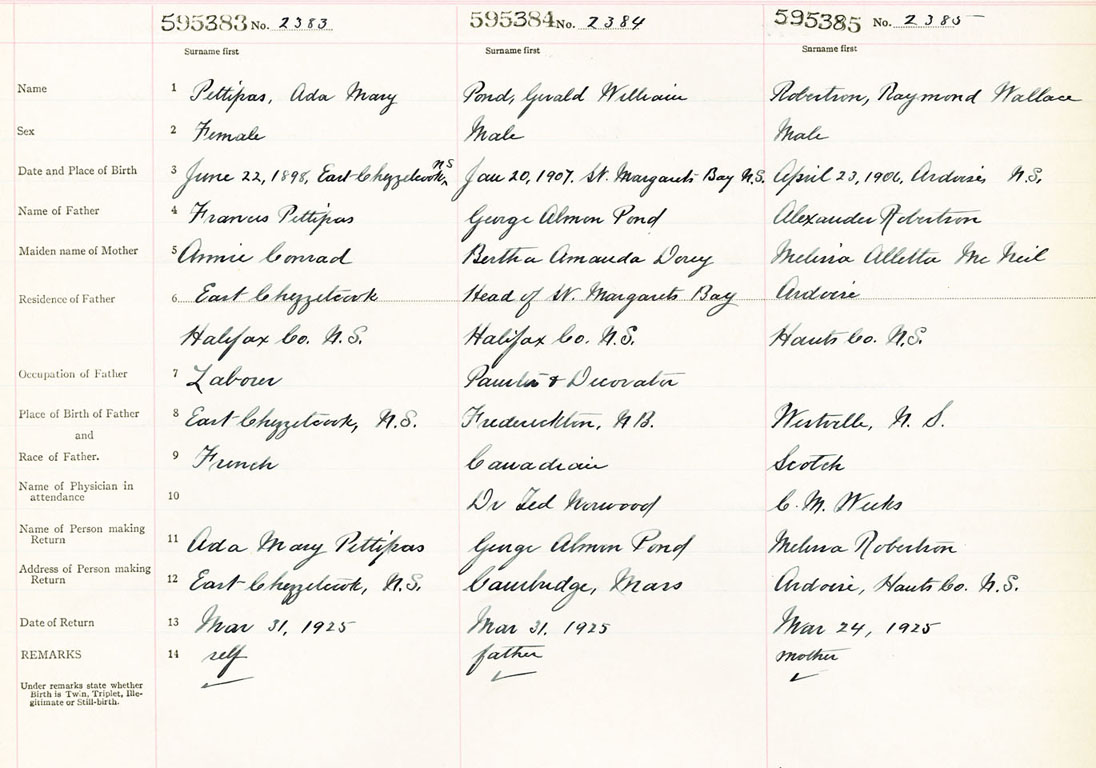 595383 No. 2383 595384 No. 2384 595385 No. 2385
Surname first Surname first Surname first
Name 1 Pettipas, Ada Mary Pond, Gerald William Robertson, Raymond Wallace
Sex 2 Female Male Male
Date and Place of Birth 3 June 22, 1898, East Chezzetcook NS Jan 20, 1907. St. Margarets Bay N.S. April 23, 1906, Ardoise N.S.
Name of Father 4 Francis Pettipas George Almon Pond Alexander Robertson
Maiden name of Mother 5 Annie Conrad Bertha Amanda Dorey Melissa Alletta McNeil
Residence of Father 6 East Chezzetcook Head of St. Margarets Bay Ardoise
Halifax Co. N.S. Halifax Co. N.S. Hants Co. N.S.
Occupation of Father 7 Laborer Painter & Decorator
Place of Birth of Father 8 East Chezzetcook, N.S. Fredericton, N.B. Westville, N.S.
and
Race of Father. 9 French Canadian Scotch
Name of Physician in
attendance 10 Dr Ted Norwood C. M. Weeks
Name of Person making
Return 11 Ada Mary Pettipas George Almon Pond Melissa Robertson
Address of Person making
Return 12 East Chezzetcook, N.S. Cambridge, Mass Ardoise, Hants Co. N.S.
Date of Return 13 Mar 31, 1925 Mar 31, 1925 Mar 24, 1925
REMARKS 14 self father mother
Under remarks state whether
Birth is Twin, Triplet, Ille-
gitimate or Still-birth.